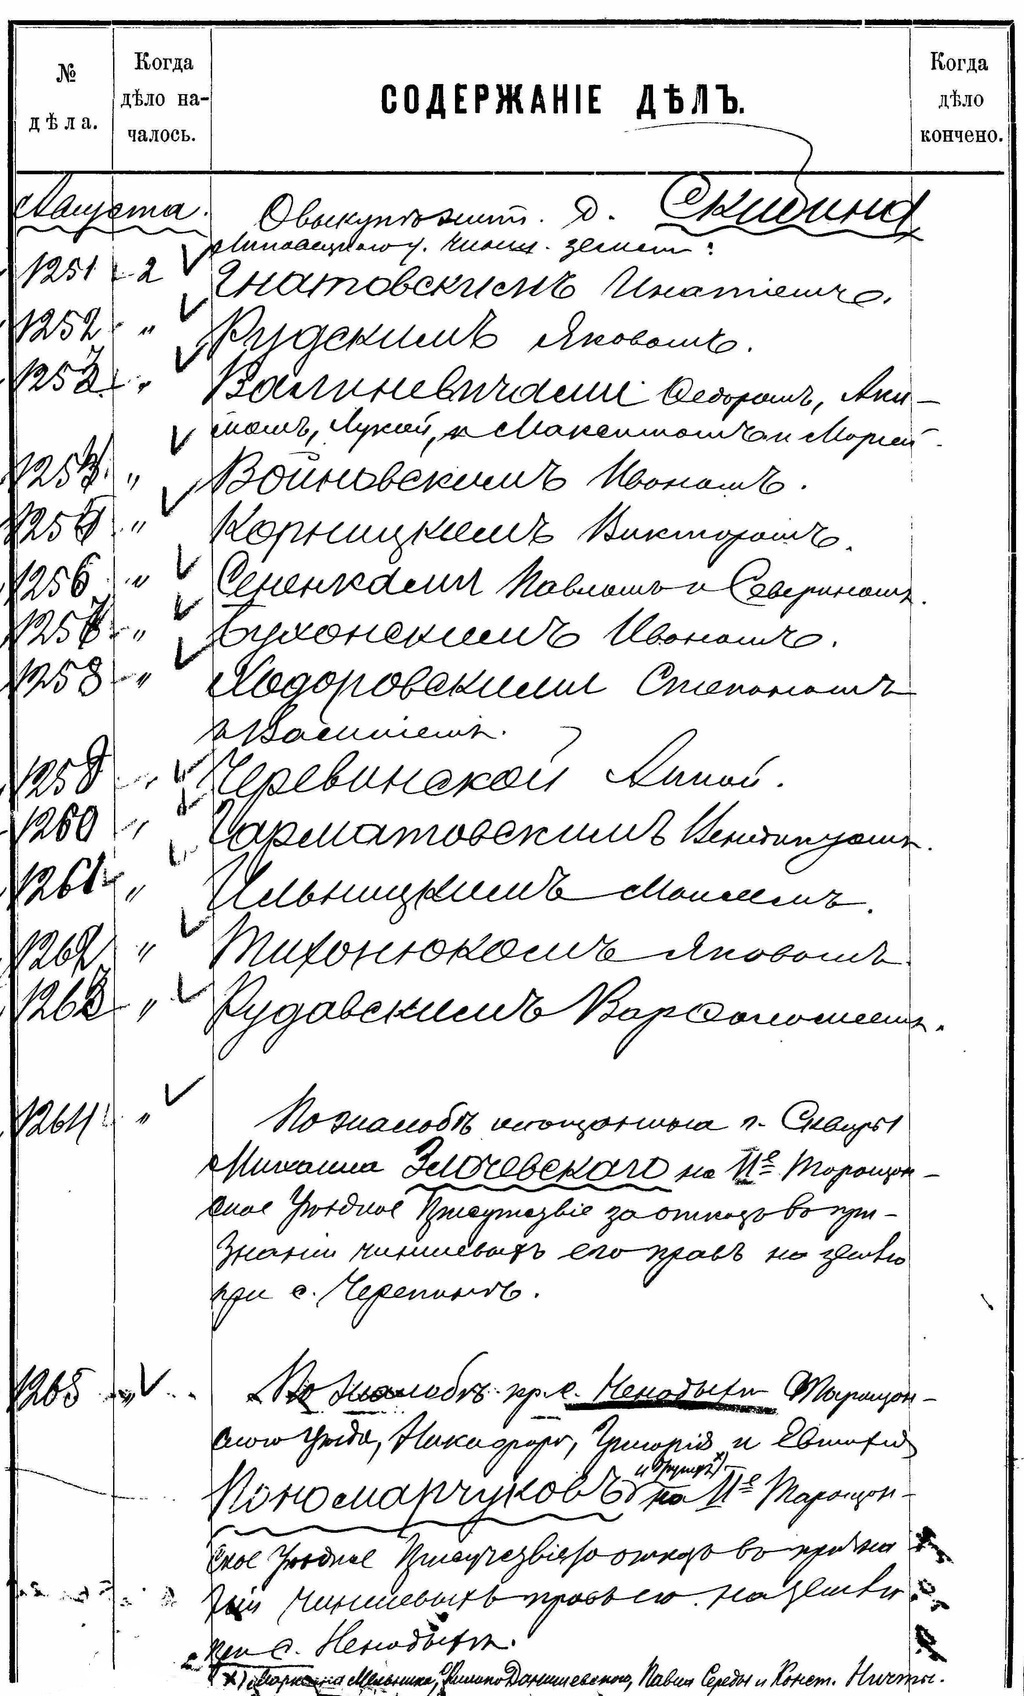 № дѣла.
Когда дѣло началось.
СОДЕРЖАНІЕ ДѢЛЪ.
Когда дѣло кончено.
Августа.
О выкупѣ жит. д. Скибина
Липовецкого у. чинш. земел:
1251 2 Гнатовскимъ Игнатіемъ.
1252 „ Рудскимъ Яковомъ.
1253 „ Валиневичами Федоромъ, Аки-
момъ, Лукой, и Максимомъ и Марѳой.
1254 „ Войновскимъ Иваномъ.
1255 „ Корницкимъ Викторомъ.
1256 „ Сененками Павломъ и Севериномъ.
1257 „ Бухонскимъ Иваномъ.
1258 „ Ходоровскими Степаномъ
и Василіемъ.
1259 „ Черевинской Анной.
1260 „ Гарматовскимъ
1261 „ Ильницкимъ Моисеемъ.
1262 „ Тихонюкомъ Яковомъ.
1263 „ Рудавскимъ Варфоломеемъ.
1264 „ По жалобѣ мѣщанина г. Сквиры
Михаила Злочевскаго на Ие Таращан-
ское Уѣздное Присутствіе за отказъ въ при-
знаніи чиншевыхъ его правъ на землю
при с. Черепинѣ.
1265 „ По жалобѣ кр. с. Ненадыхи Таращан-
скаго уѣзда, Никифора, Григорія и Евтихія
Пономарчуковъ и другихъ х) на IIе Таращан-
ское Уѣздное Присутствіе за отказъ въ призна
ніи чиншевыхъ правъ его на землю
при с. Ненадыхи.
х) Марка Мельника, Данишевскаго, Павла Середы и Конст. Ничты.